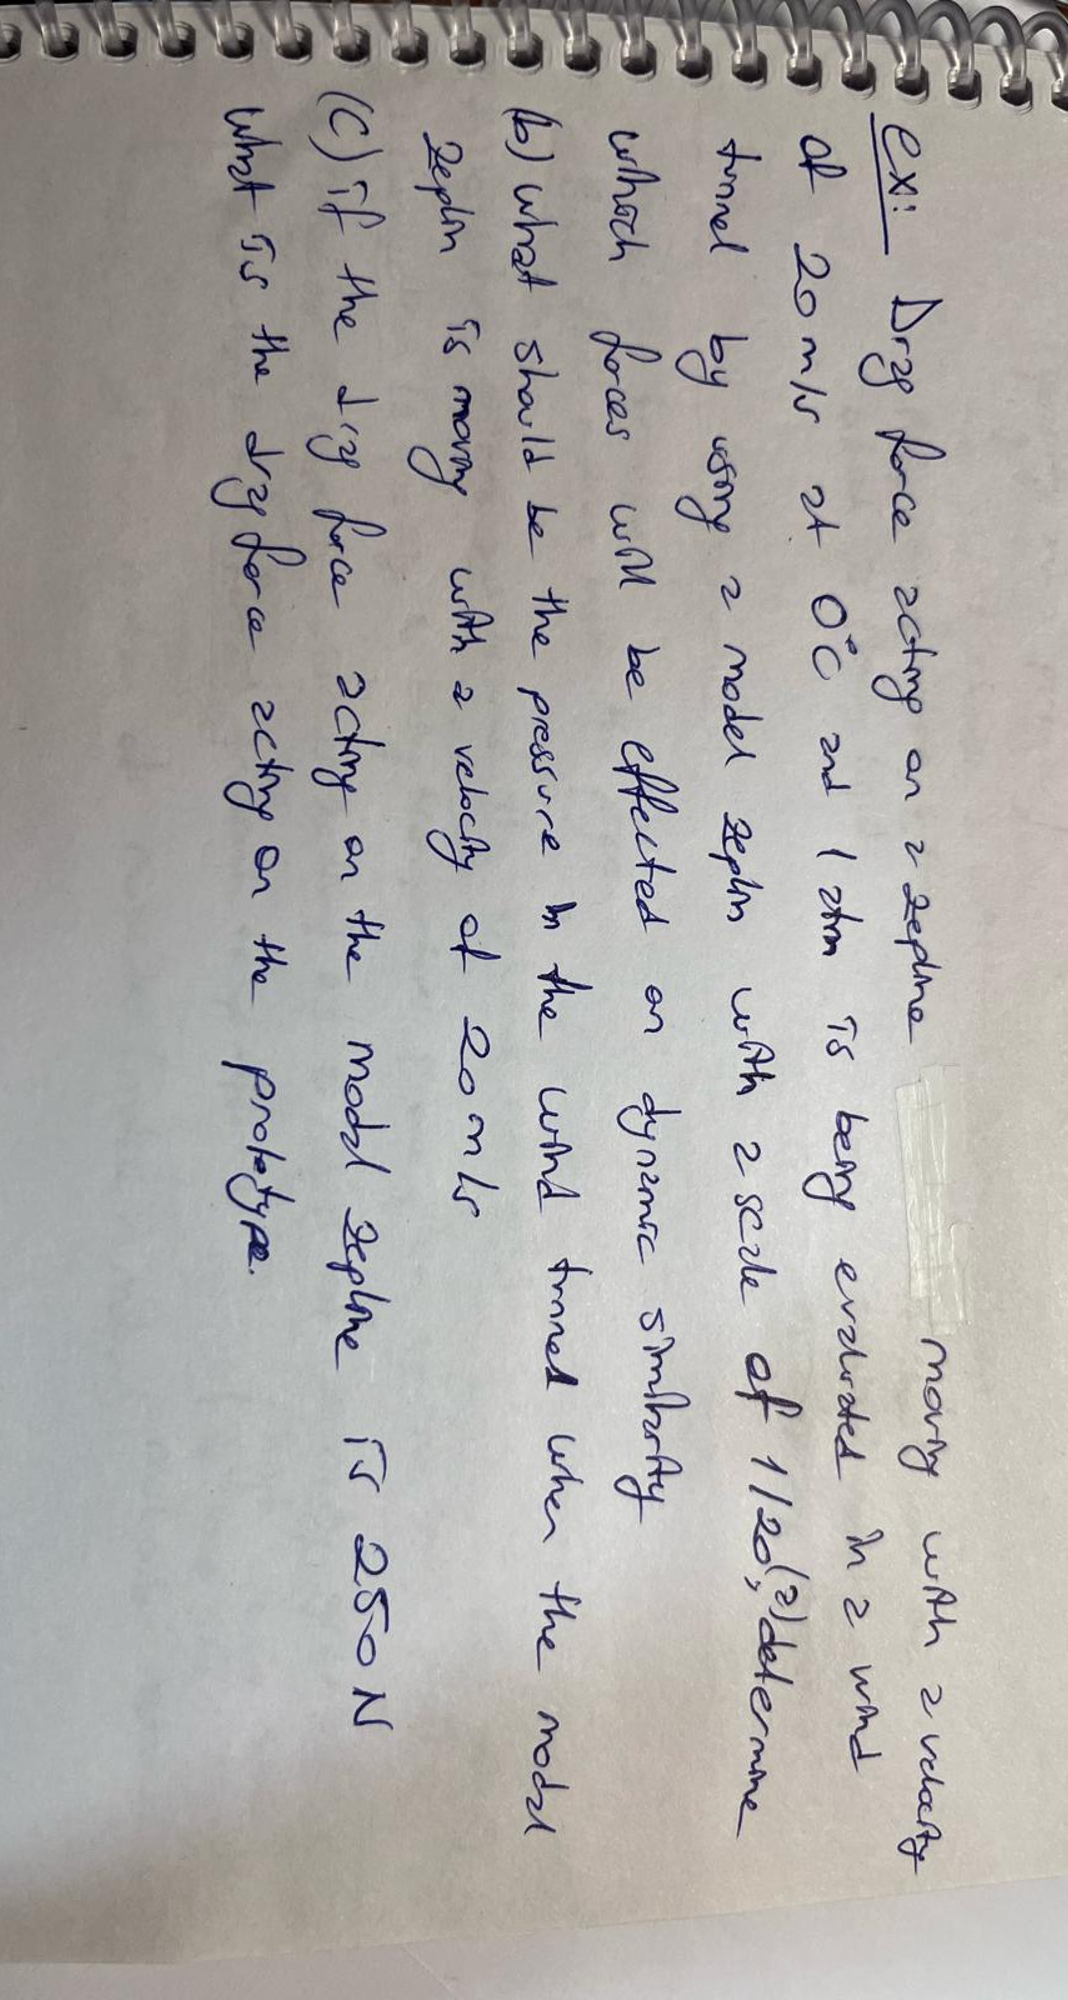 ex: Drag force acting on a zepline moving with a velocity
of 20 m/s at 0°C and 1 atm is being evaluated in a wind
tunnel by using a model zeplin with a scale of 1/20, (a) determine
which forces will be effected on dynamic similarity
(b) what should be the pressure in the wind tunnel when the model
zeplin is moving with a velocity of 20 m/s
(c) if the drag force acting on the model zepline is 250 N
what is the drag force acting on the prototype.